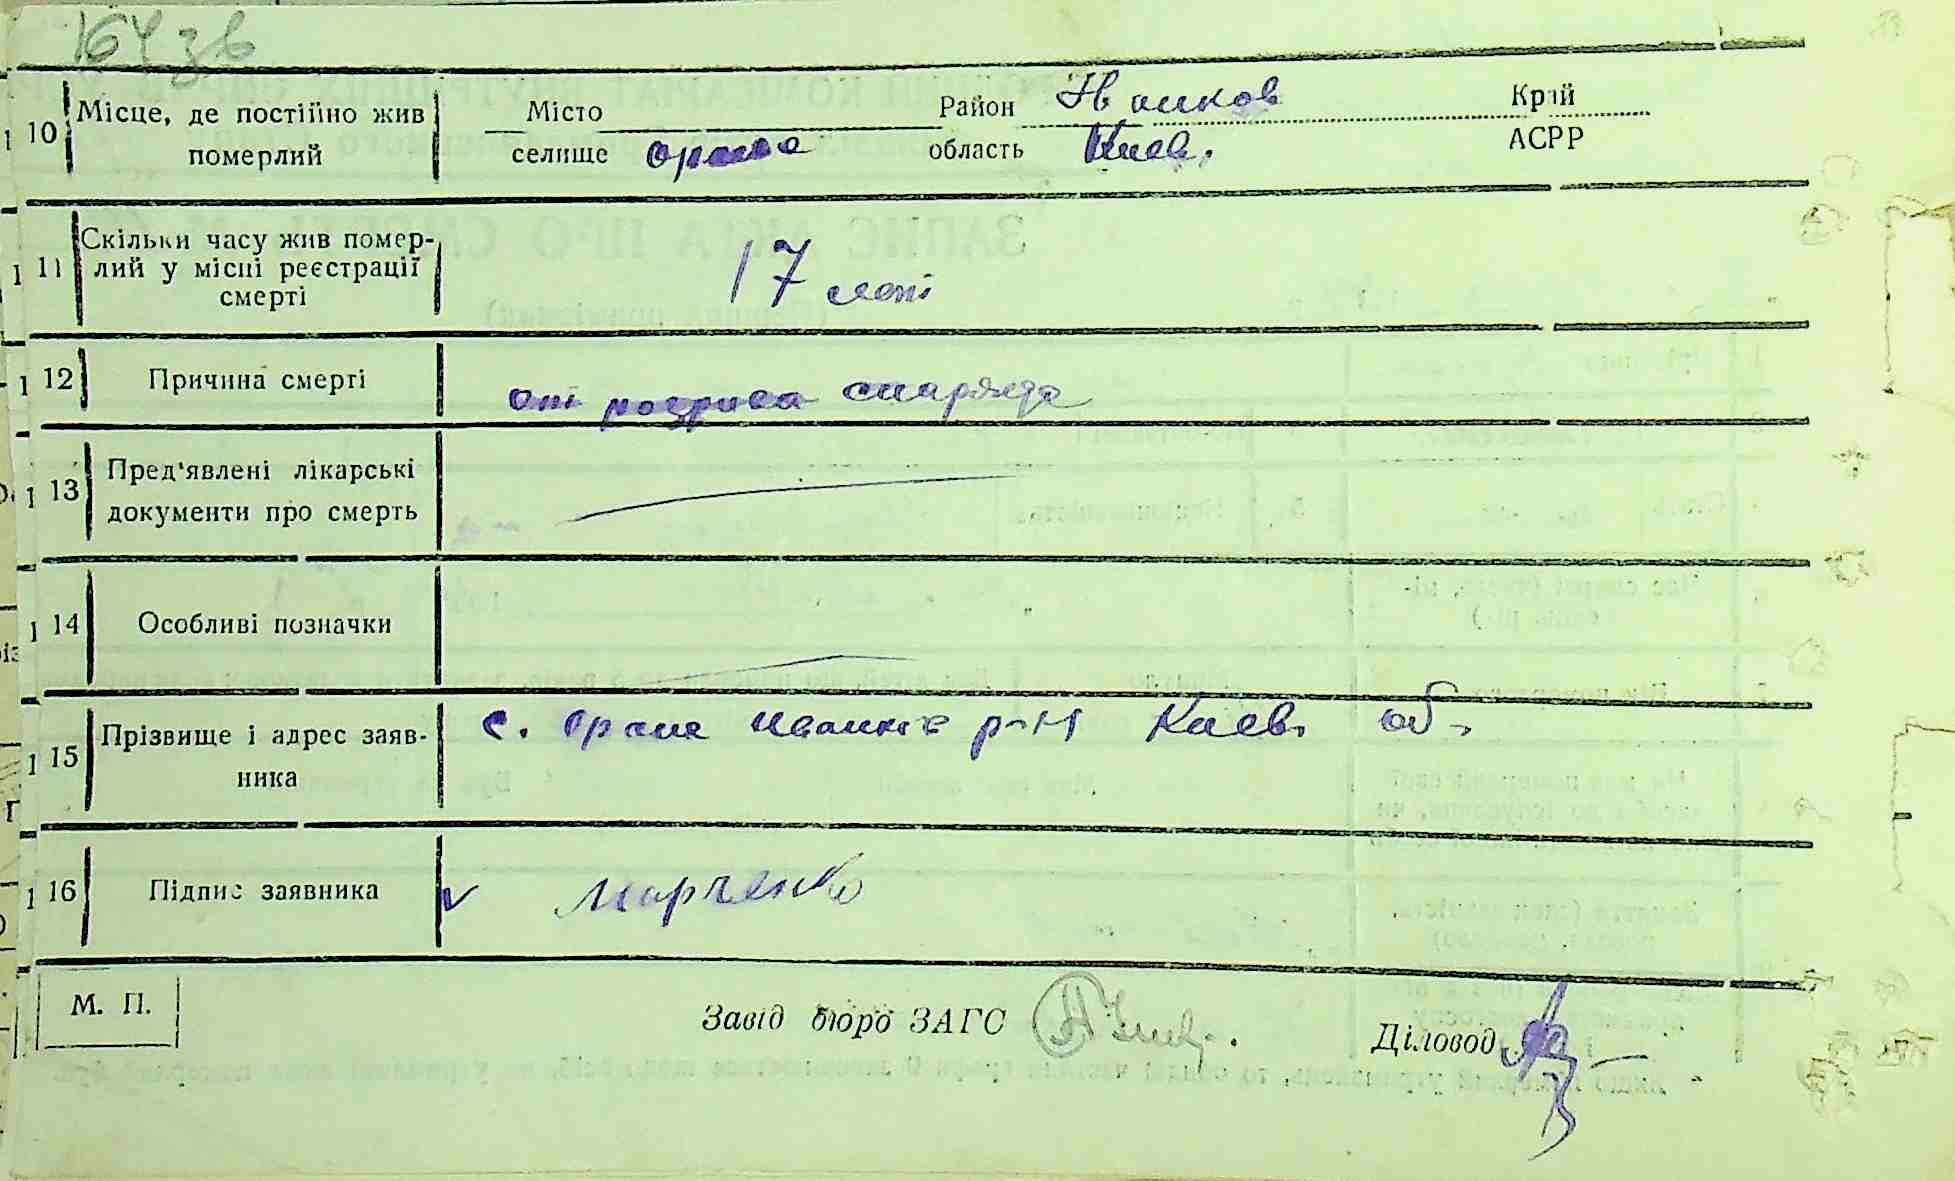 164 зв
10 Місце, де постійно жив померлий
Місто Район Иванков Край
селище Оране область Киев. АСРР
11 Скільки часу жив помер-
лий у місці реєстрації
смерті
17 лет
12 Причина смерті
от розрива снаряда
13 Пред'явлені лікарські
документи про смерть
14 Особливі позначки
15 Прізвище і адрес заяв-
ника
с. Оране Иванків р-н Києв. об.
16 Підпис заявника
Марченко
М. П.
Завід бюро ЗАГС
Діловод